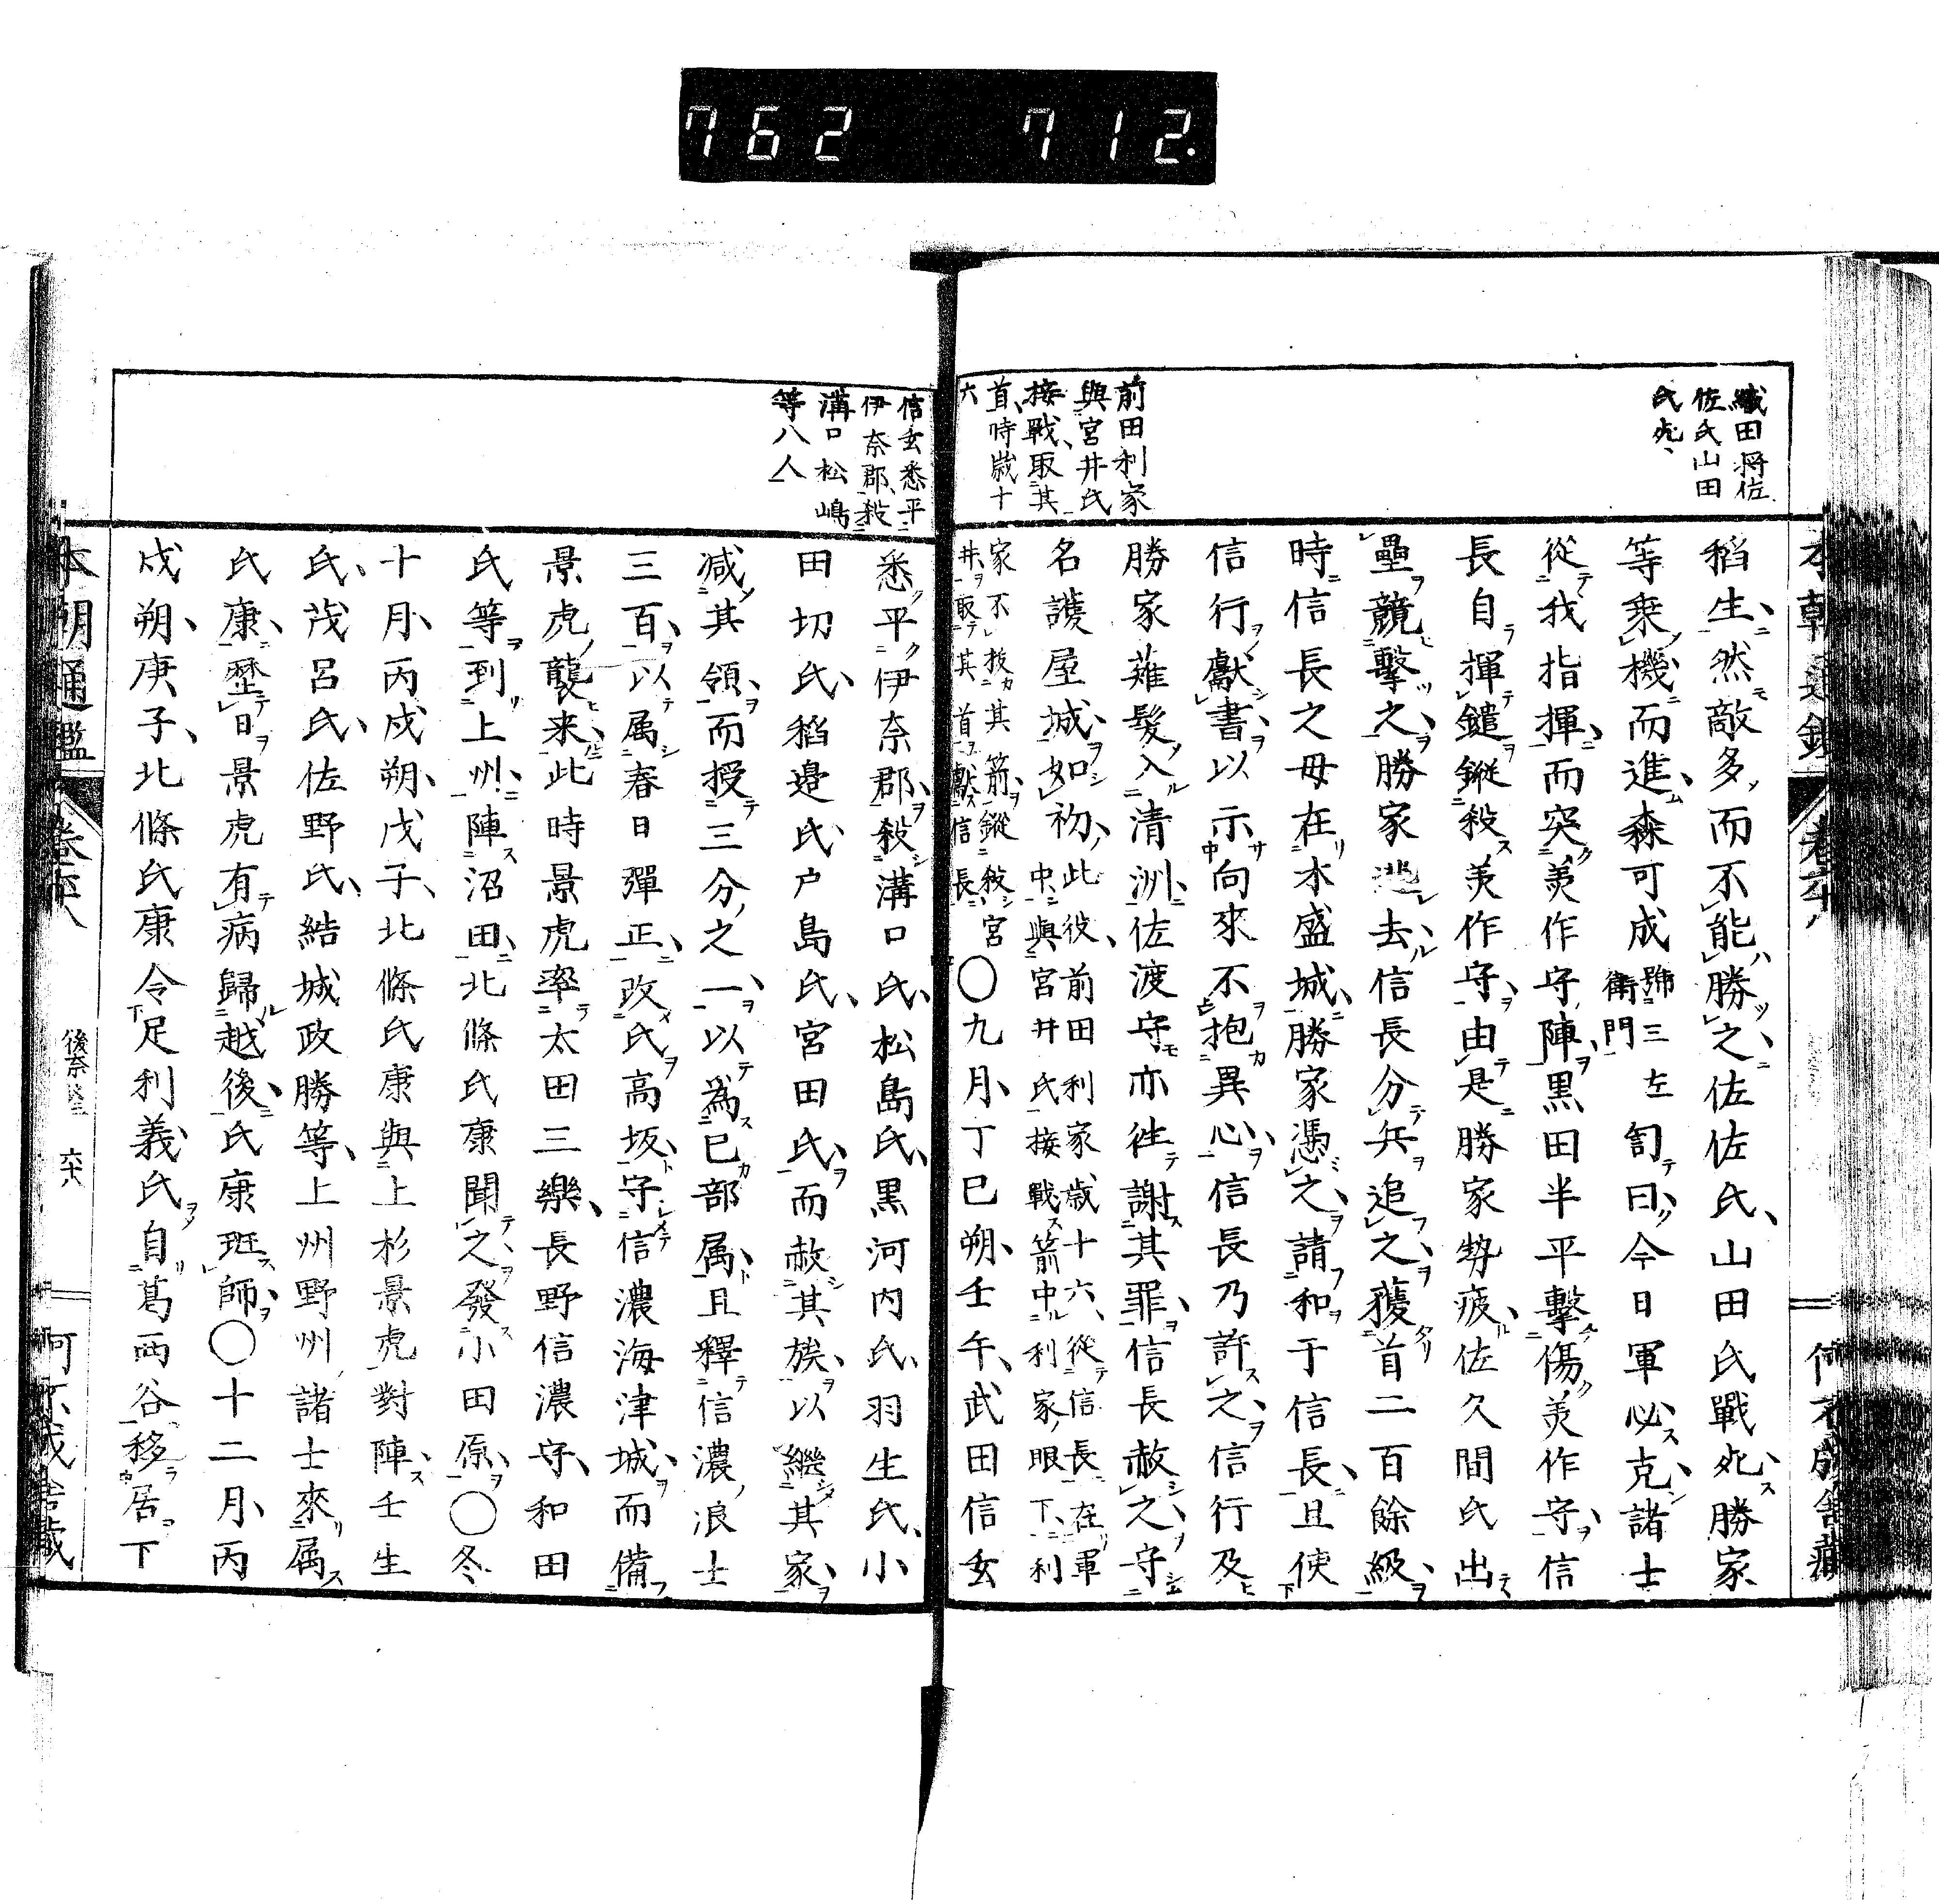 762 712.
織田将佐
佐氏山田
氏死、
前田利家
與宮井氏
接戰、取其
首、時歳十
六
稻生、然敵多、而不能勝之、佐佐氏、山田氏戰死、勝家
等乘機而進、森可成號三左衛門訇曰、今日軍必克、諸士
從我指揮、而突羙作守陣、黒田半平擊傷羙作守、信
長自揮鑓鏦殺羙作守、由是勝家勢疲、佐久間氏出
壘競擊之、勝家逃去、信長分兵追之、獲首二百餘級、
時信長之母在木盛城、勝家憑之、請和于信長、且使
信行獻書、以示向來不抱異心、信長乃許之、信行及
勝家薙髮入清洲、佐渡守亦往謝其罪、信長赦之、守
名護屋城、如初、此役、前田利家歳十六、從信長在軍中、與宮井氏接戰箭中利家眼下、利
家不拔其箭、鏦殺宮井取其首獻信長、〇九月、丁巳朔、壬午、武田信玄
信玄悉平
伊奈郡、殺
溝口松嶋
等八人
悉平伊奈郡、殺溝口氏、松島氏、黒河内氏、羽生氏、小
田切氏、稻邉氏、戸島氏、宮田氏、而赦其族、以繼其家、
減其領、而授三分之一、以為已部属、且釋信濃浪士
三百、以属春日彈正、改氏高坂、守信濃海津城、而備
景虎襲来、此時景虎率太田三樂、長野信濃守、和田
氏等到上州、陣沼田、北條氏康聞之、發小田原、〇冬、
十月、丙戌朔、戊子、北條氏康與上杉景虎對陣、壬生
氏、茂呂氏、佐野氏、結城政勝等、上州野州諸士來属
氏康、歷日景虎有病歸越後、氏康班師、〇十二月、丙
戌朔、庚子、北條氏康令足利義氏自葛西谷移居下
本朝通鑑 卷六十八 後奈 六十八